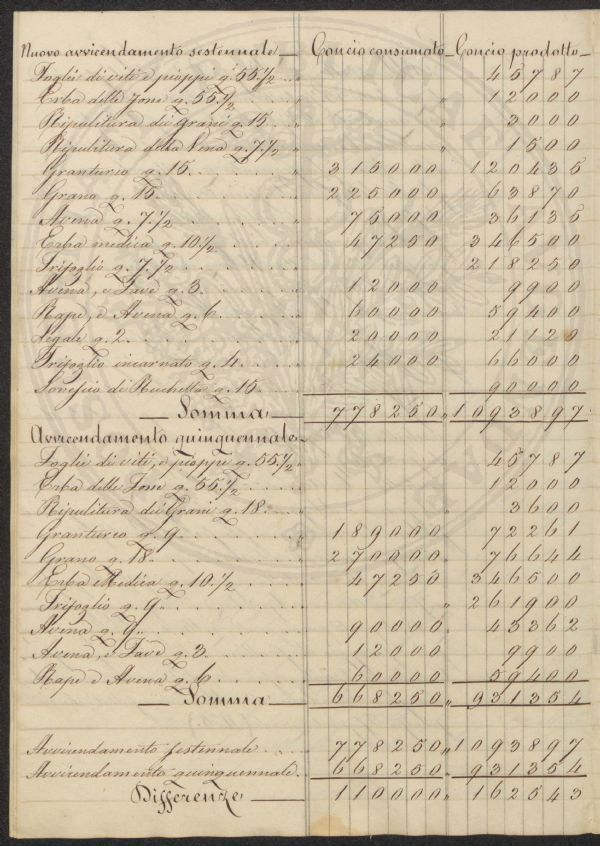 Nuovo avvicendamento sestennale Concio consumato Concio prodotto
Foglie di viti e pioppi q. 55.1/2 45787
Erba delle fosse q. 55.1/2 12000
Ripulitura dei Grani q. 15 3000
Ripulitura della Vena q. 7.1/2 1500
Granturco q. 15 315000 120435
Grano q. 15 225000 63870
Avena q. 7.1/2 75000 36135
Erba medica q. 10.1/2 47250 346500
Trifoglio q. 7.1/2 218250
Avena, e Fave q. 3 12000 9900
Rape, e Avena q. 6 60000 59400
Segale q. 2 20000 21120
Trifoglio incarnato q. 4 24000 66000
Sovescio di Ruchetta q. 15 90000
Somma 778250 „ 1093897
Avvicendamento quinquennale
Foglie di viti, e pioppi q. 55.1/2 45787
Erba delle fosse q. 55.1/2 12000
Ripulitura dei Grani q. 18 3600
Granturco q. 9 189000 72261
Grano q. 18 270000 76644
Erba Medica q. 10.1/2 47250 346500
Trifoglio q. 9 261900
Avena q. 9 90000 43362
Avena, e Fave q. 3 12000 9900
Rape e Avena q. 6 60000 59400
Somma 668250 „ 931354
Avvicendamento sestennale 778250 „ 1093897
Avvicendamento quinquennale 668250 „ 931354
Differenze 110000 „ 162543